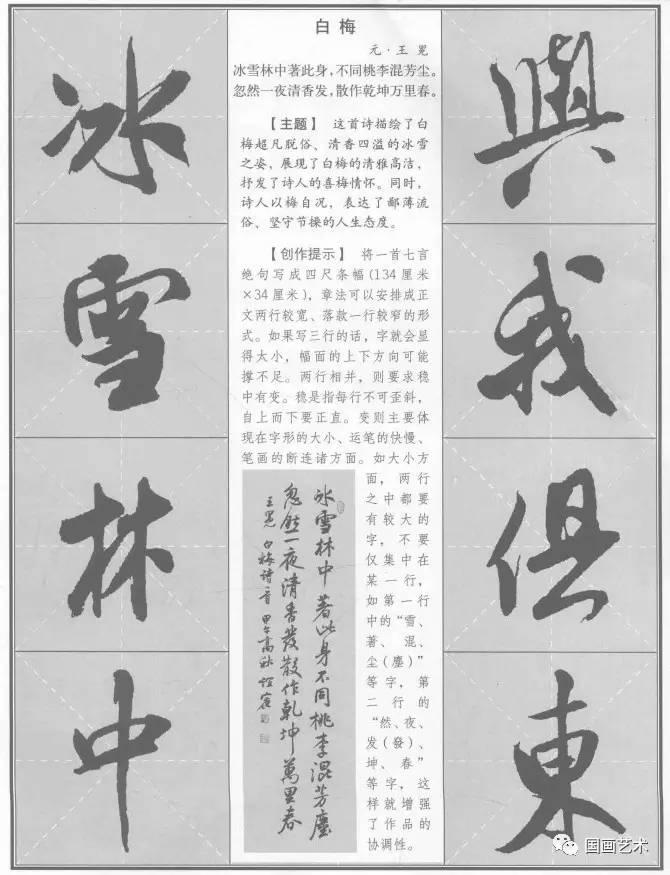 與
我
俱
東
白梅
元·王冕
冰雪林中著此身，不同桃李混芳尘。
忽然一夜清香发，散作乾坤万里春。
【主题】 这首诗描绘了白
梅超凡脱俗、清香四溢的冰雪
之姿，展现了白梅的清雅高洁，
抒发了诗人的喜梅情怀。同时，
诗人以梅自况，表达了鄙薄流
俗、坚守节操的人生态度。
【创作提示】 将一首七言
绝句写成四尺条幅（134厘米
×34厘米），章法可以安排成正
文两行较宽、落款一行较窄的形
式。如果写三行的话，字就会显
得太小，幅面的上下方向可能
撑不足。两行相并，则要求稳
中有变。稳是指每行不可歪斜，
自上而下要正直。变则主要体
现在字形的大小、运笔的快慢、
笔画的断连诸方面。如大小方
面，两行
之中都要
有较大的
字，不要
仅集中在
某一行，
如第一行
中的“雪、
著、混、
尘（塵）”
等字，第
二行的
“然、夜、
发（發）、
坤、春”
等字，这
样就增强
了作品的
协调性。
冰雪林中著此身不同桃李混芳塵
忽然一夜清香發散作乾坤萬里春
王冕白梅诗一首甲午高秋
冰
雪
林
中
国画艺术